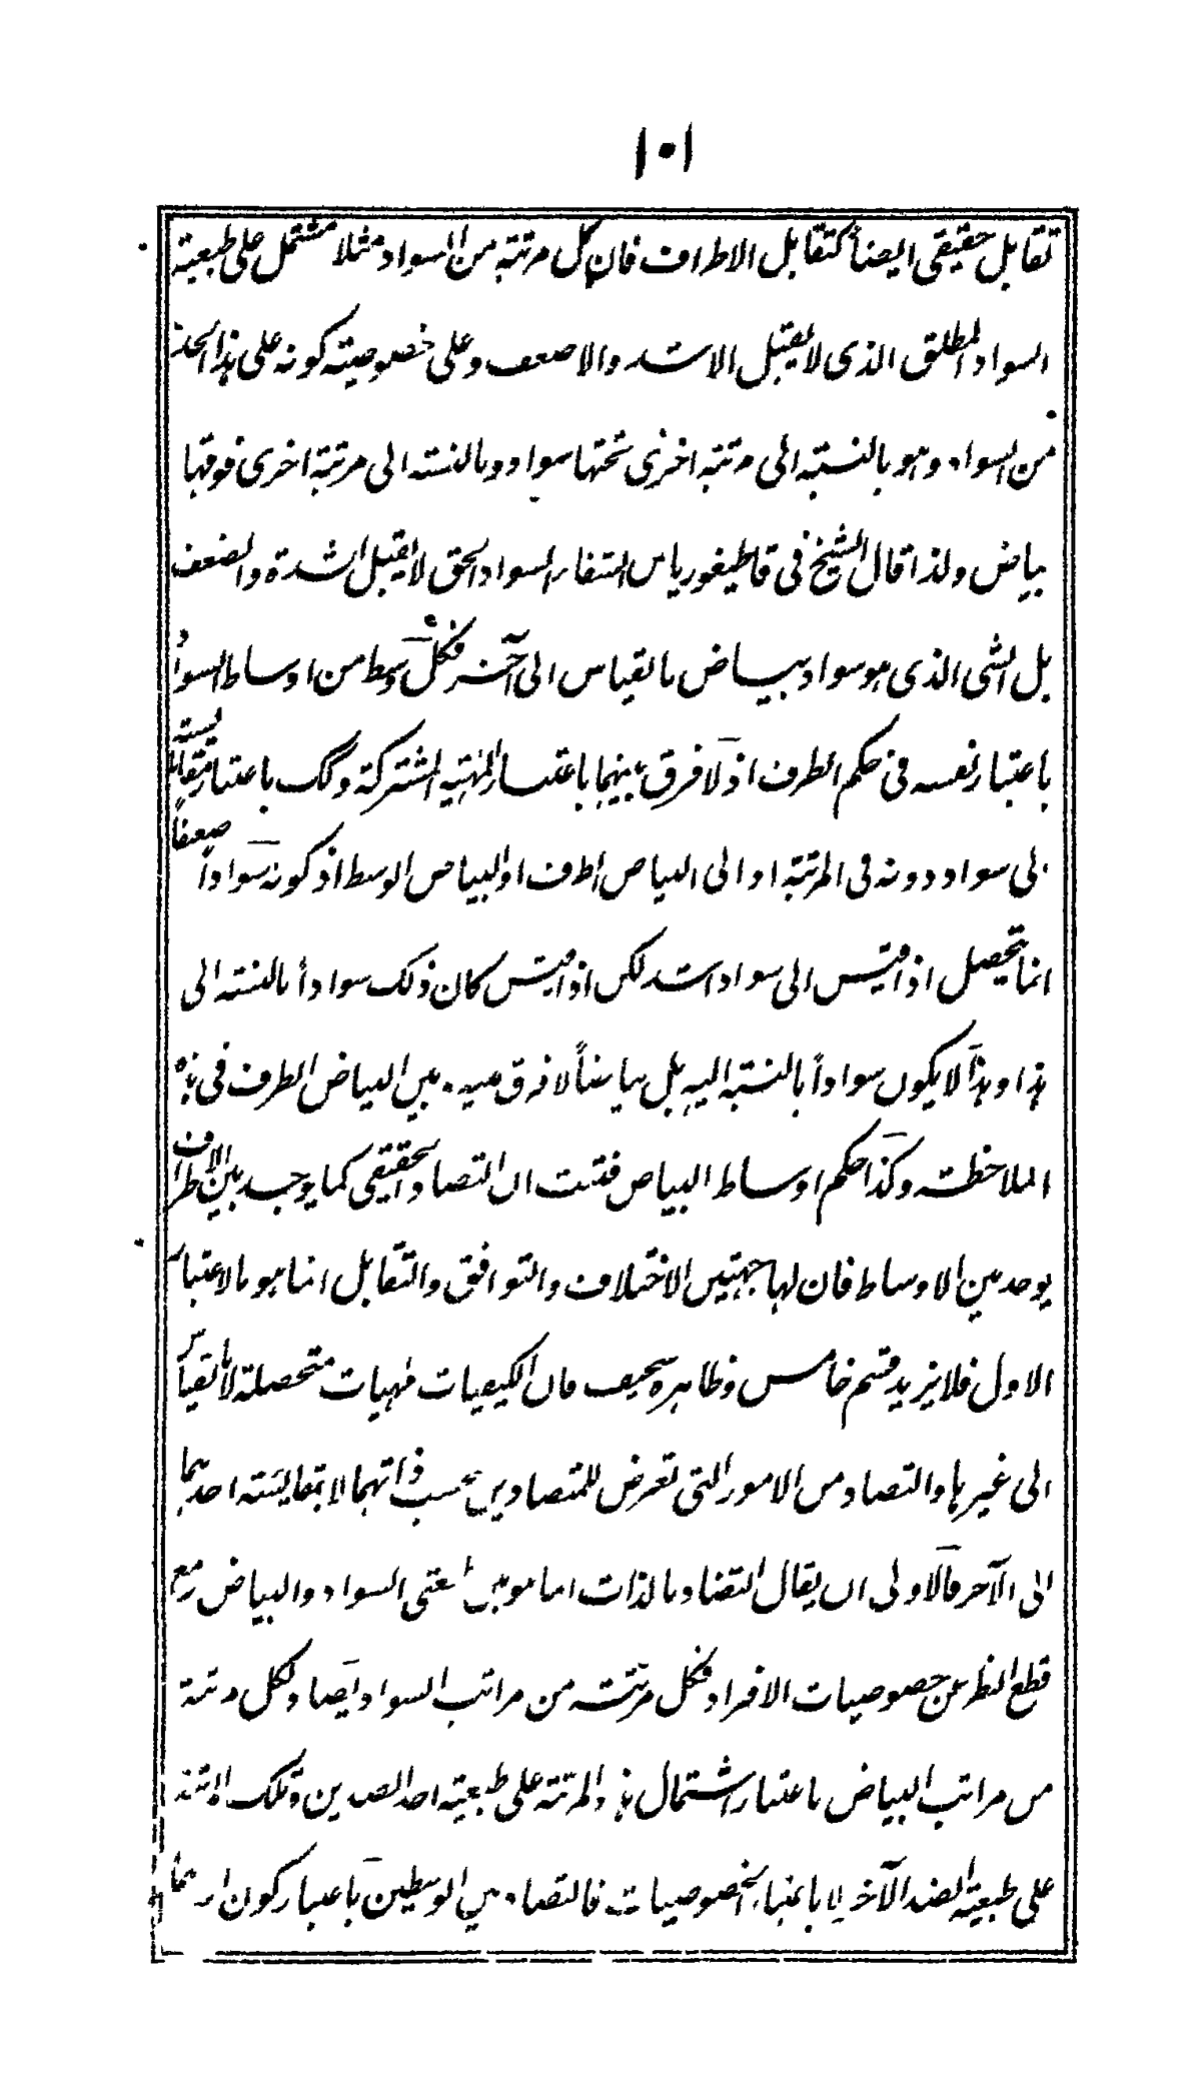 ١٠١
تقابل حقيقى ايضاً كتقابل الاطراف فان كل مرتبة من السواد مثلا مشتمل على طبعية
السواد المطلق الذى لا يقبل الاشد والاضعف وعلى خصوصية كونه على هذا الحد
من السواد وهو بالنسبة الى مرتبة اخرى تحتها سواد وبالنسبة الى مرتبة اخرى فوقها
بياض ولذا قال الشيخ فى قاطيغورياس الشفاء السواد الحق لا يقبل الشدة والضعف
بل الشى الذى هو سواد بياض بالقياس الى آخر فكل وسط من اوساط السواد
باعتبار نفسه فى حكم الطرف اذ لا فرق بينهما باعتبار المهية المشتركة وكك باعتبار مقايسته
الى سواد دونه فى المرتبة او الى البياض الطرف او البياض الوسط اذ كونه سواداً ضعفا
انما يتحصل اذا قيس الى سواد اشد لكن اذا قيس كان ذلك سواداً بالنسبة الى
هذا وهذا لا يكون سواداً بالنسبة اليه بل بياضاً لا فرق بينه وبين البياض الطرف فى هذه
الملاحظة وكذا حكم اوساط البياض فثبت ان التضاد الحقيقى كما يوجد بين الاطراف
يوجد بين الاوساط فان لها جهتين الاختلاف والتوافق والتقابل انما هو بالاعتبار
الاول فلا يزيد قسم خامس وظاهره سخيف فان الكيفيات مهيات متحصلة لا بالقياس
الى غيرها والتضاد من الامور التى تعرض للمتضادين بحسب ذاتهما لا بمقايسة احدهما
الى الآخر فالاولى ان يقال التضاد بالذات انما هو بين اعنى السواد والبياض مع
قطع النظر عن خصوصيات الافراد فكل مرتبة من مراتب السواد ايضا ولكل مرتبة
من مراتب البياض باعتبار اشتمال هذه المرتبة على طبعية احد الضدين وتلك المرتبة
على طبعية الضد الآخر لا باعتبار الخصوصيات فالتضاد بين الوسطين باعتبار كون